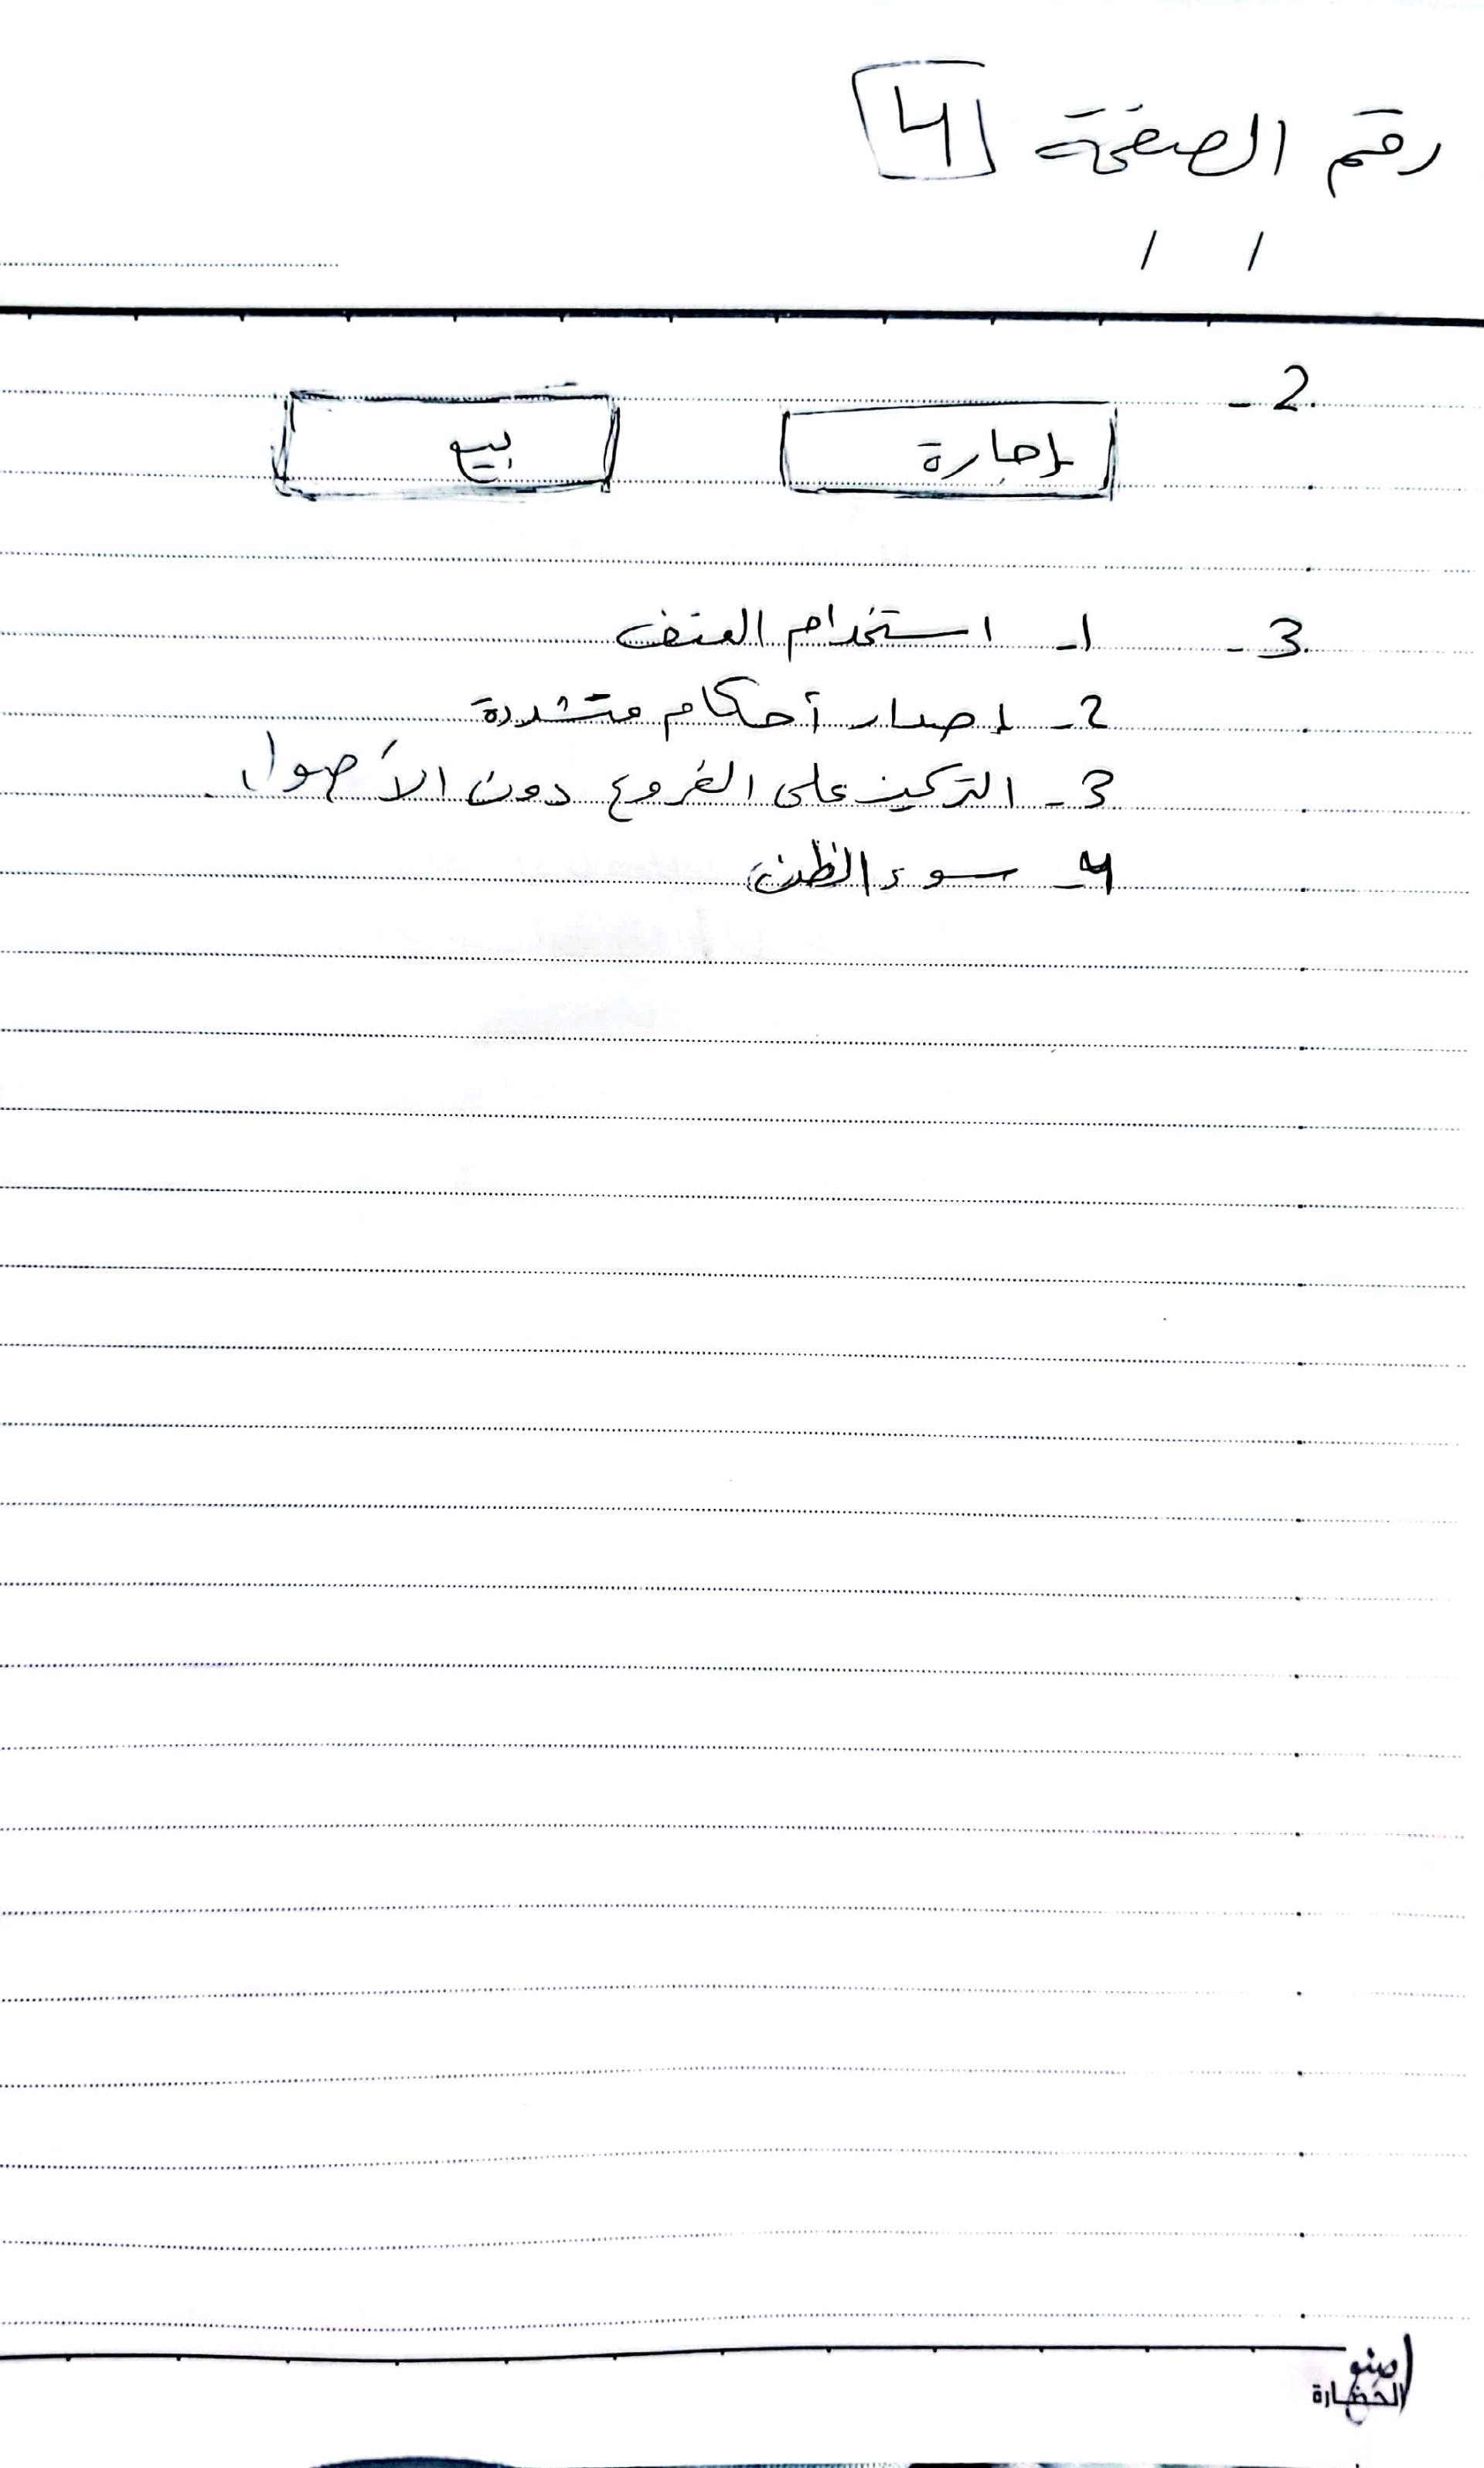 رقم الصفحة 4
/ /
2 -
إجارة بيع
3 - 1- استخدام العنف
2- إصدار أحكام متشددة
3- التركيز على الفروع دون الأصول.
4- سوء الظن
صنو
الحضارة